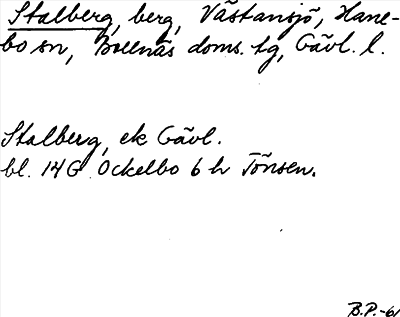 Stalberg, berg, Västansjö, Hane-
bo sn, Bollnäs doms. tg, Gävl. l.
Stalberg, ek Gävl.
bl. 14G Ockelbo 6 h Tönsen.
B.P.-61